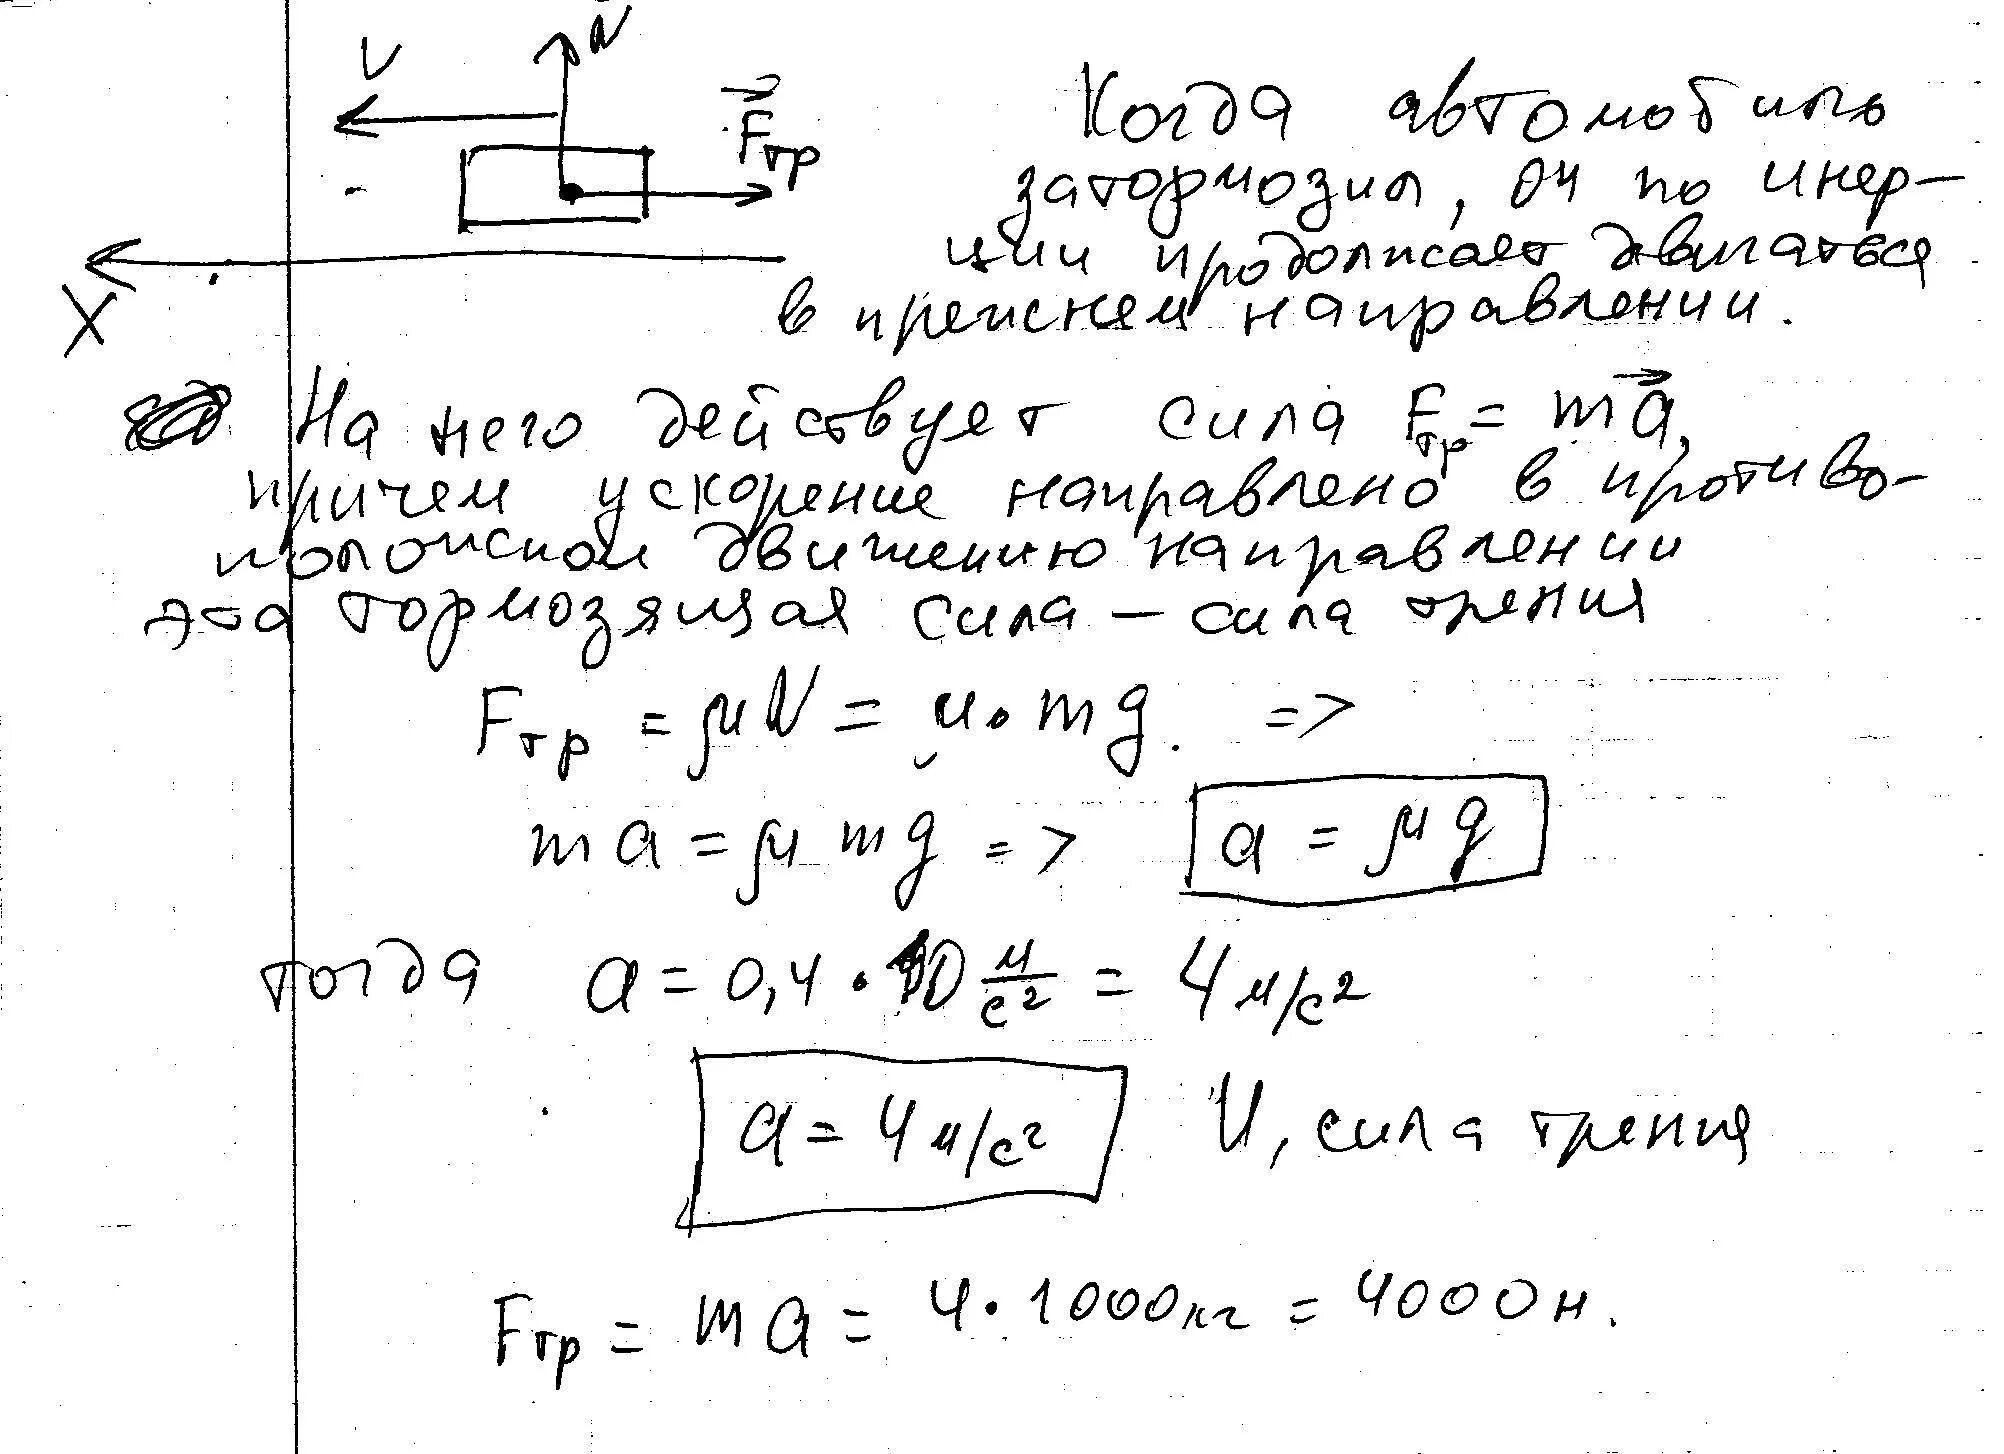 V
N
F тр
X
Когда автомобиль
затормозил, он по инер-
ции продолжает двигаться
в прежнем направлении.
На него действует сила Fтр = ma,
причем ускорение направлено в противо-
положном движению направлении
эта тормозящая сила – сила трения
Fтр = μN = μ·mg. =>
ma = μmg => a = μg
тогда a = 0,4·10 м/с² = 4 м/с²
a = 4 м/с² И, сила трения
Fтр = ma = 4·1000кг = 4000н.